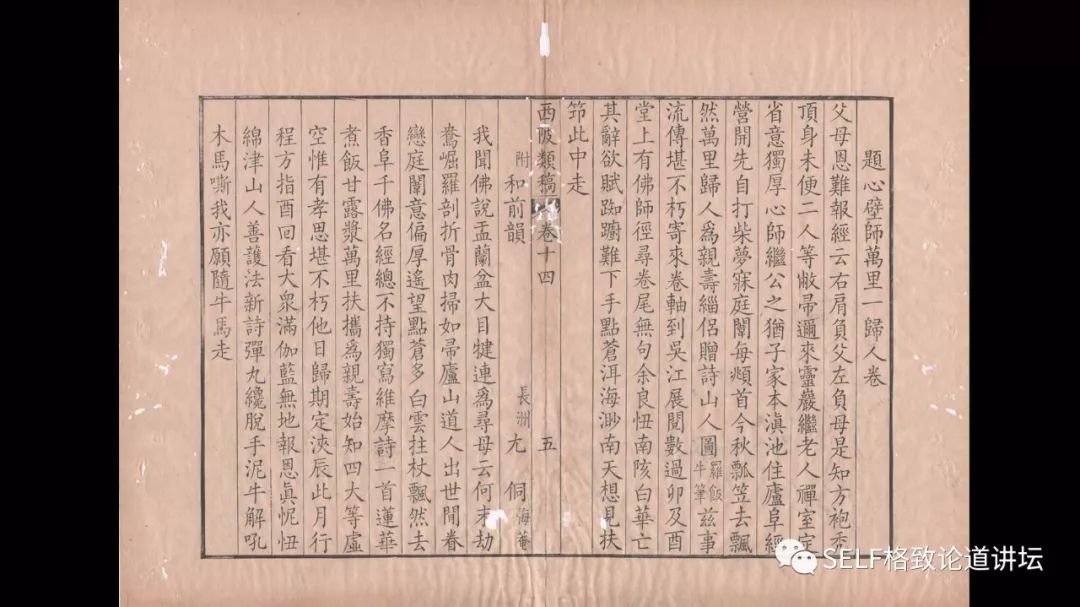 題心壁師萬里一歸人卷
父母恩難報經云右肩負父左負母是知方袍禿
頂身未便二人等敝帚邇來靈巖繼老人禪室定
省意獨厚心師繼公之猶子家本滇池住廬阜經
營開先自打柴夢寐庭闈每頫首今秋瓢笠去飄
然萬里歸人爲親壽緇侶贈詩山人圖羅飯牛筆茲事
流傳堪不朽寄來卷軸到吳江展閱數過卯及酉
堂上有佛師徑尋卷尾無句余良忸南陔白華亡
其辭欲賦踟躕難下手點蒼洱海渺南天想見扶
筇此中走
西陂類稿 卷十四 五
附和前韻 長洲尤侗悔菴
我聞佛說盂蘭盆大目犍連爲尋母云何末劫
鴦崛羅剖折骨肉掃如帚廬山道人出世閒眷
戀庭闈意偏厚遙望點蒼多白雲拄杖飄然去
香阜千佛名經總不持獨寫維摩詩一首蓮華
煮飯甘露漿萬里扶攜爲親壽始知四大等虛
空惟有孝思堪不朽他日歸期定浹辰此月行
程方指酉回看大衆滿伽藍無地報恩眞怩忸
綿津山人善護法新詩彈丸纔脫手泥牛解吼
木馬嘶我亦願隨牛馬走
SELF格致论道讲坛